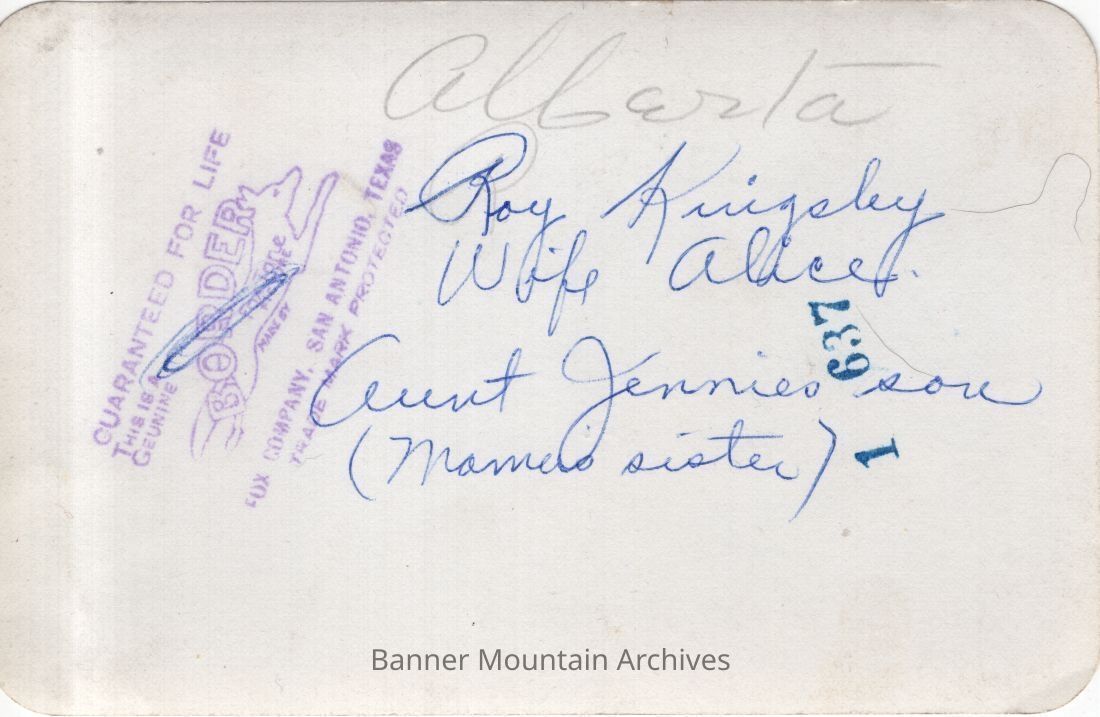 Alberta
Roy Kingsley
Wife Alice.
Aunt Jennies son
(Mamie's sister)
637
1
GUARANTEED FOR LIFE
THIS IS A
GEUNINE
BORDER
MADE BY
FOX COMPANY, SAN ANTONIO, TEXAS
TRADE MARK PROTECTED
Banner Mountain Archives